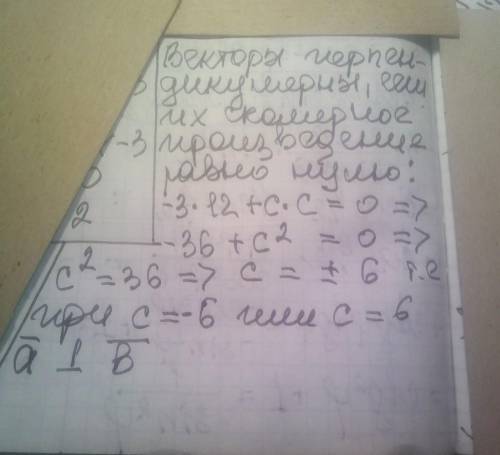 Векторы перпен-
дикулярны, если
их скалярное
-3
произведение
0
равно нулю:
2
-3·12+c·c=0=>
-36+c²=0=>
c²=36=> c=±6 т.е
при c=-6 или c=6
a̅ ⊥ b̅